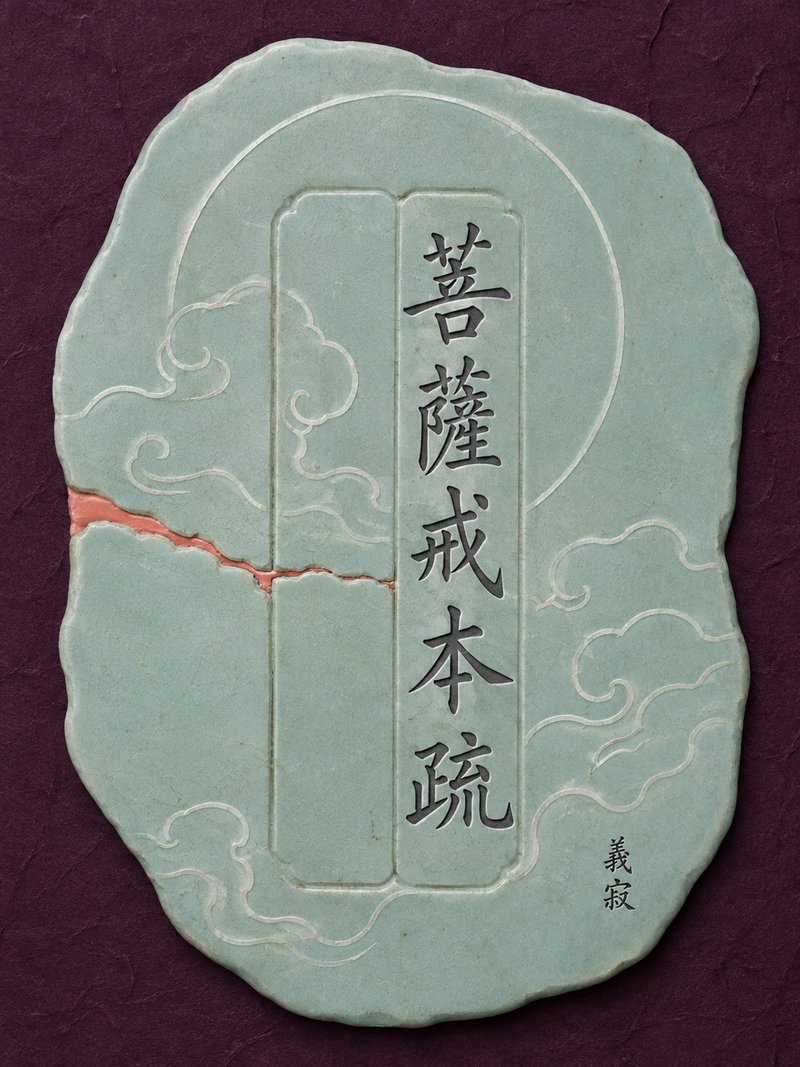 菩薩戒本疏
義寂